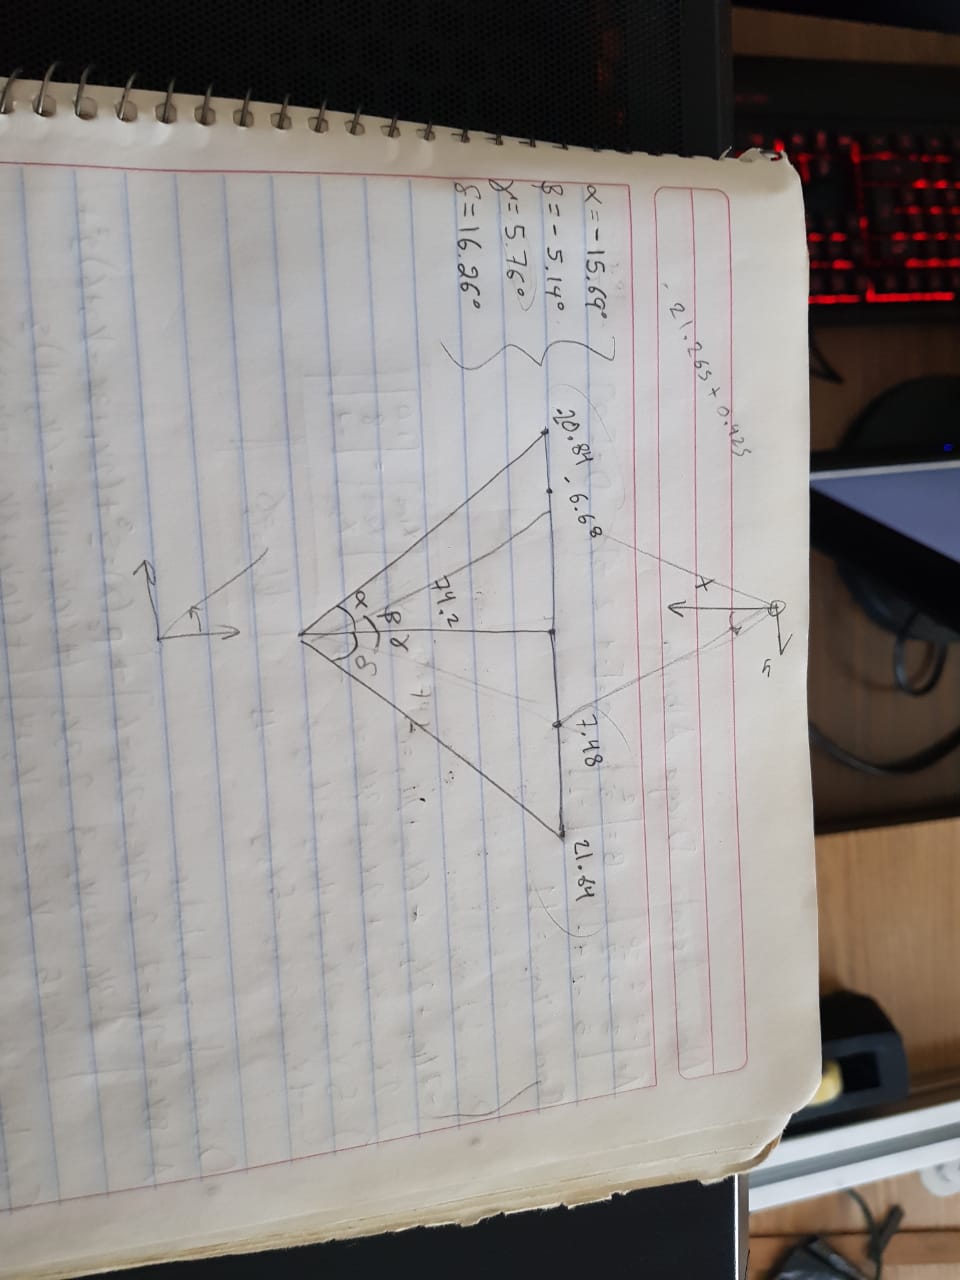 21.265 + 0.425
x
y
α = -15.69°
β = -5.14°
γ = 5.76°
δ = 16.26°
20.84
6.68
7.48
21.64
74.2
α
β
γ
δ